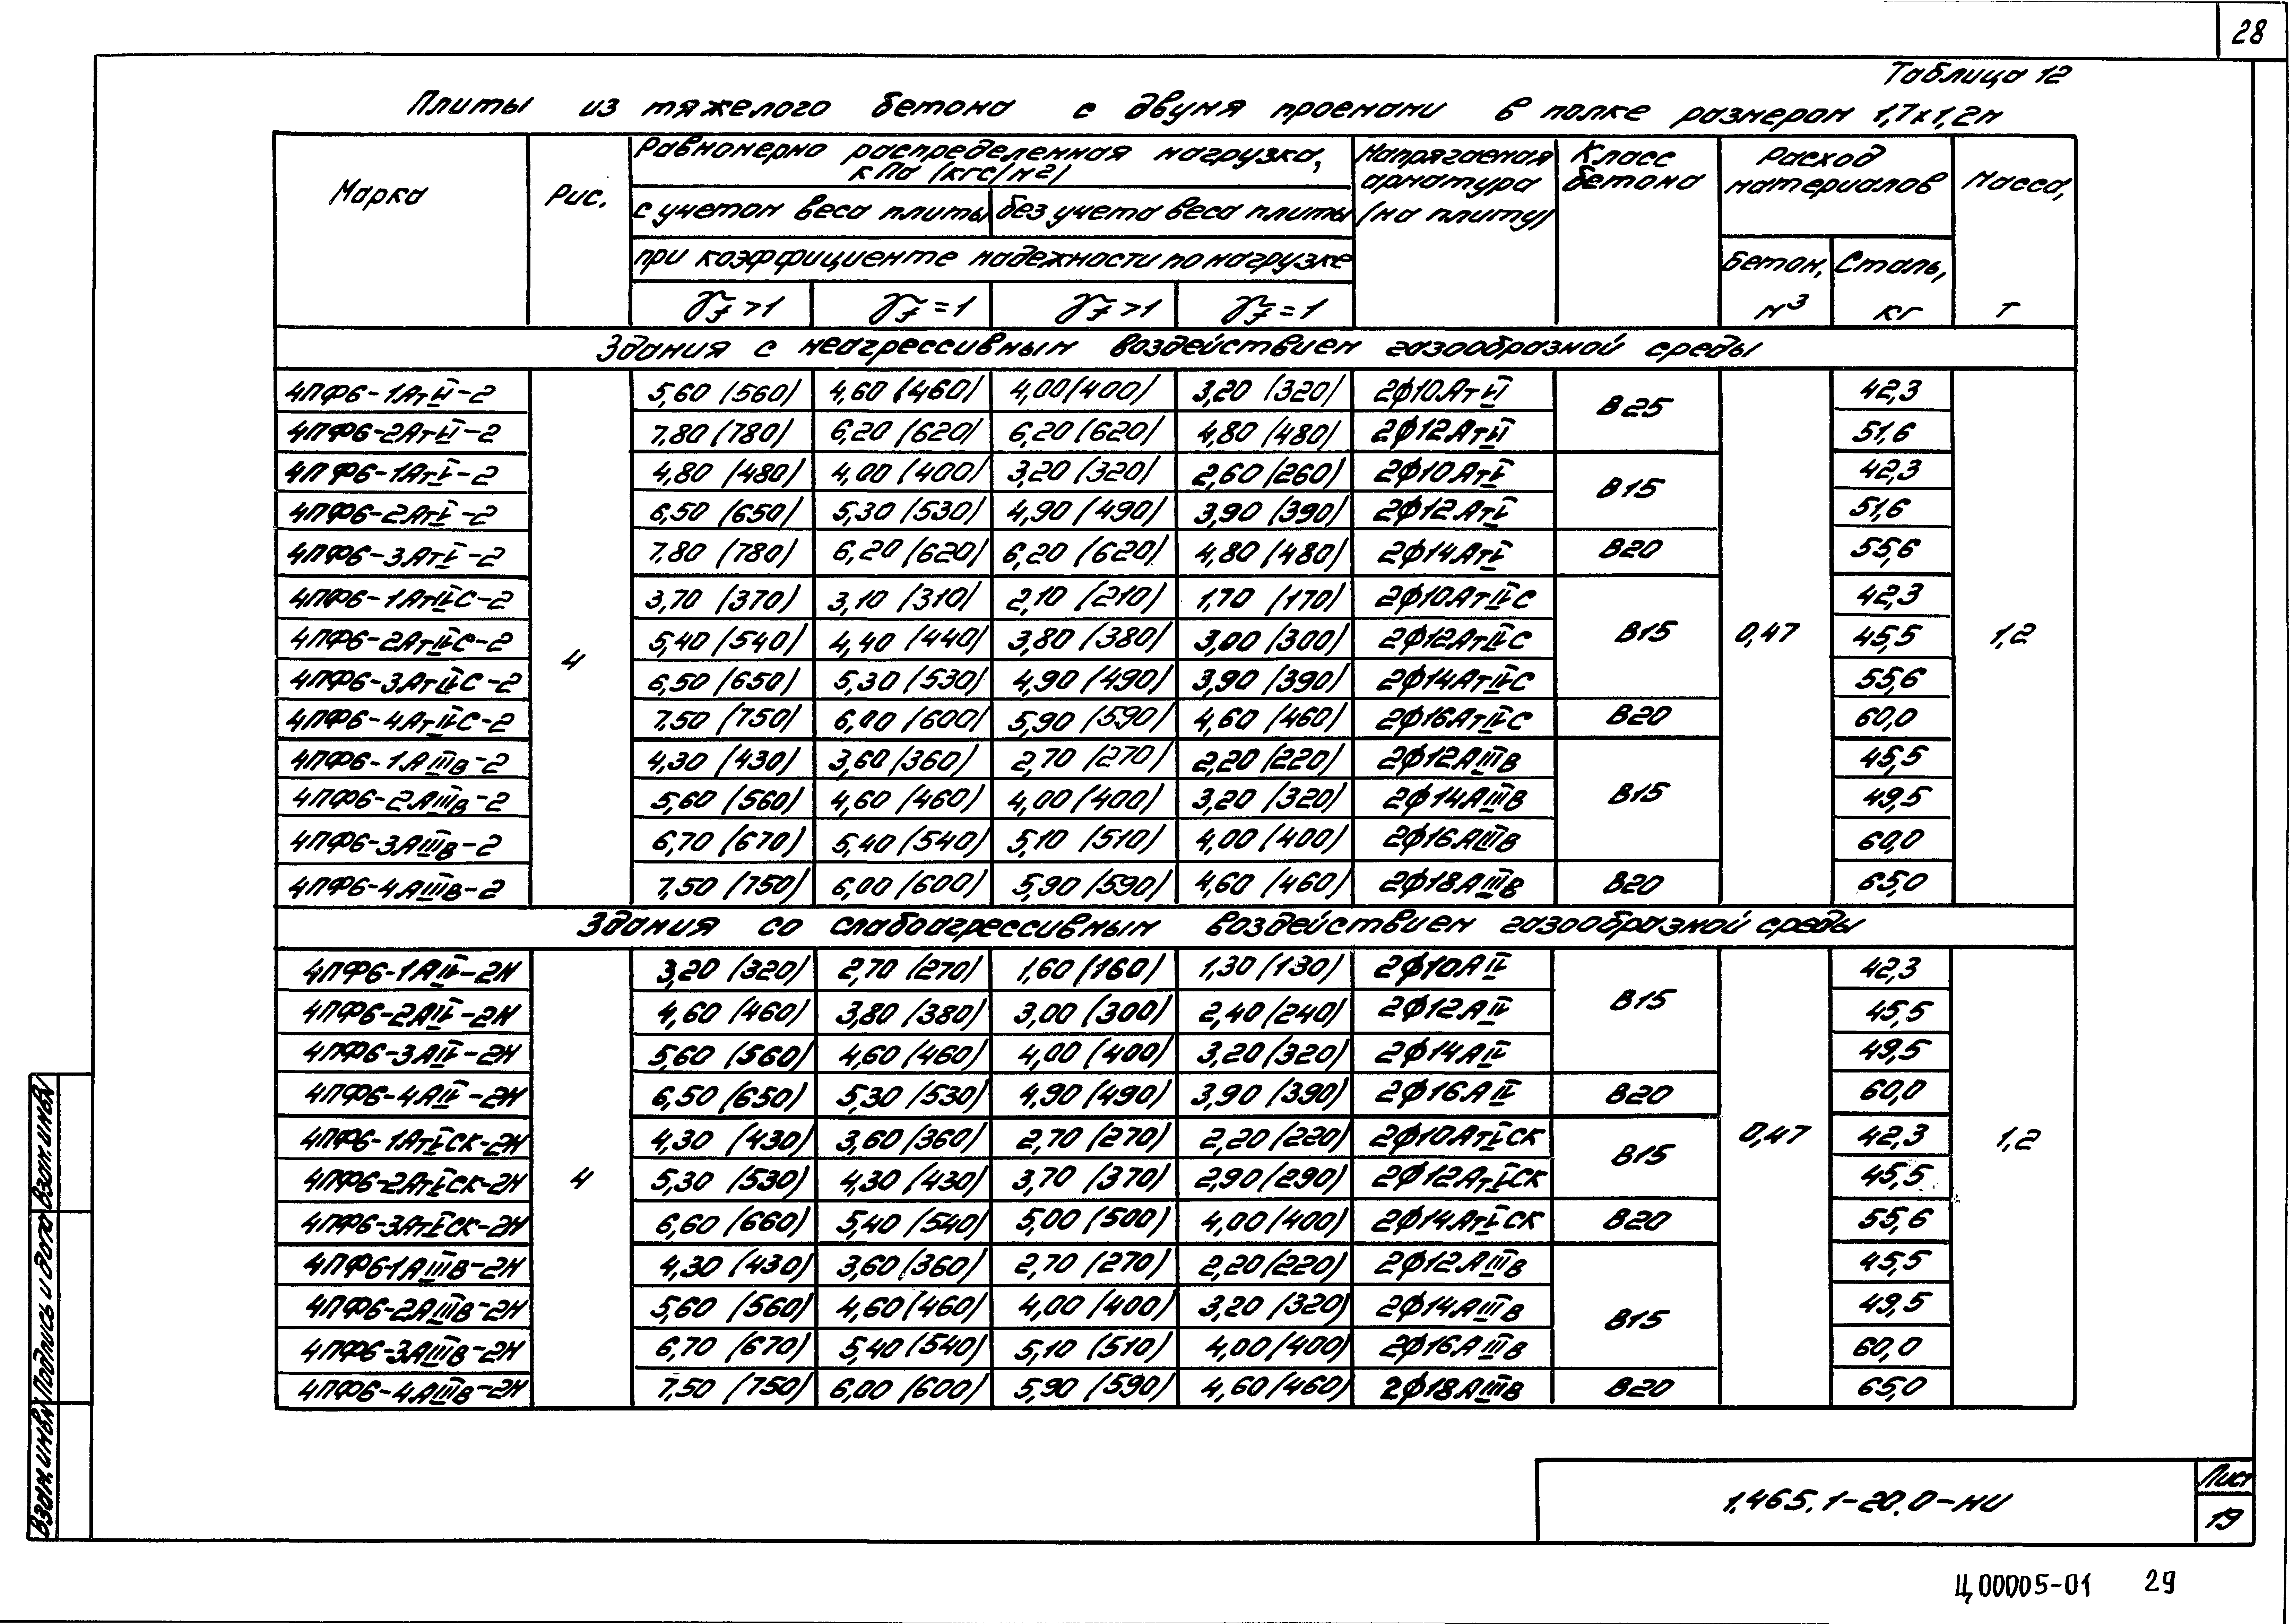 28
Таблица 12
Плиты из тяжелого бетона с двумя проемами в полке размером 1,7х1,2м
Марка Рис. Равномерно распределенная нагрузка, кПа (кгс/м²) Напрягаемая арматура (на плиту) Класс бетона Расход материалов Масса, т
с учетом веса плиты без учета веса плиты
при коэффициенте надежности по нагрузке Бетон, м³ Сталь, кг
γf >1 γf =1 γf >1 γf =1
Здания с неагрессивным воздействием газообразной среды
4ПФ6-1АтVI-2 4 5,60 (560) 4,60 (460) 4,00 (400) 3,20 (320) 2ϕ10АтVI В25 0,47 42,3 1,2
4ПФ6-2АтVI-2 7,80 (780) 6,20 (620) 6,20 (620) 4,80 (480) 2ϕ12АтVI 51,6
4ПФ6-1АтV-2 4,80 (480) 4,00 (400) 3,20 (320) 2,60 (260) 2ϕ10АтV В15 42,3
4ПФ6-2АтV-2 6,50 (650) 5,30 (530) 4,90 (490) 3,90 (390) 2ϕ12АтV 51,6
4ПФ6-3АтV-2 7,80 (780) 6,20 (620) 6,20 (620) 4,80 (480) 2ϕ14АтV В20 55,6
4ПФ6-1АтIVС-2 3,70 (370) 3,10 (310) 2,10 (210) 1,70 (170) 2ϕ10АтIVС В15 42,3
4ПФ6-2АтIVС-2 5,40 (540) 4,40 (440) 3,80 (380) 3,00 (300) 2ϕ12АтIVС 45,5
4ПФ6-3АтIVС-2 6,50 (650) 5,30 (530) 4,90 (490) 3,90 (390) 2ϕ14АтIVС 55,6
4ПФ6-4АтIVС-2 7,50 (750) 6,00 (600) 5,90 (590) 4,60 (460) 2ϕ16АтIVС В20 60,0
4ПФ6-1АIIIв-2 4,30 (430) 3,60 (360) 2,70 (270) 2,20 (220) 2ϕ12АIIIв В15 45,5
4ПФ6-2АIIIв-2 5,60 (560) 4,60 (460) 4,00 (400) 3,20 (320) 2ϕ14АIIIв 49,5
4ПФ6-3АIIIв-2 6,70 (670) 5,40 (540) 5,10 (510) 4,00 (400) 2ϕ16АIIIв 60,0
4ПФ6-4АIIIв-2 7,50 (750) 6,00 (600) 5,90 (590) 4,60 (460) 2ϕ18АIIIв В20 65,0
Здания со слабоагрессивным воздействием газообразной среды
4ПФ6-1АIV-2Н 4 3,20 (320) 2,70 (270) 1,60 (160) 1,30 (130) 2ϕ10АIV В15 0,47 42,3 1,2
4ПФ6-2АIV-2Н 4,60 (460) 3,80 (380) 3,00 (300) 2,40 (240) 2ϕ12АIV 45,5
4ПФ6-3АIV-2Н 5,60 (560) 4,60 (460) 4,00 (400) 3,20 (320) 2ϕ14АIV 49,5
4ПФ6-4АIV-2Н 6,50 (650) 5,30 (530) 4,90 (490) 3,90 (390) 2ϕ16АIV В20 60,0
4ПФ6-1АтVСК-2Н 4,30 (430) 3,60 (360) 2,70 (270) 2,20 (220) 2ϕ10АтVСК В15 42,3
4ПФ6-2АтVСК-2Н 5,30 (530) 4,30 (430) 3,70 (370) 2,90 (290) 2ϕ12АтVСК 45,5
4ПФ6-3АтVСК-2Н 6,60 (660) 5,40 (540) 5,00 (500) 4,00 (400) 2ϕ14АтVСК В20 55,6
4ПФ6-1АIIIв-2Н 4,30 (430) 3,60 (360) 2,70 (270) 2,20 (220) 2ϕ12АIIIв В15 45,5
4ПФ6-2АIIIв-2Н 5,60 (560) 4,60 (460) 4,00 (400) 3,20 (320) 2ϕ14АIIIв 49,5
4ПФ6-3АIIIв-2Н 6,70 (670) 5,40 (540) 5,10 (510) 4,00 (400) 2ϕ16АIIIв 60,0
4ПФ6-4АIIIв-2Н 7,50 (750) 6,00 (600) 5,90 (590) 4,60 (460) 2ϕ18АIIIв В20 65,0
Взам.инв.№
Подпись и дата
Взам.инв.№
1.465.1-20.0-НИ
Лист
19
Ц00005-01 29